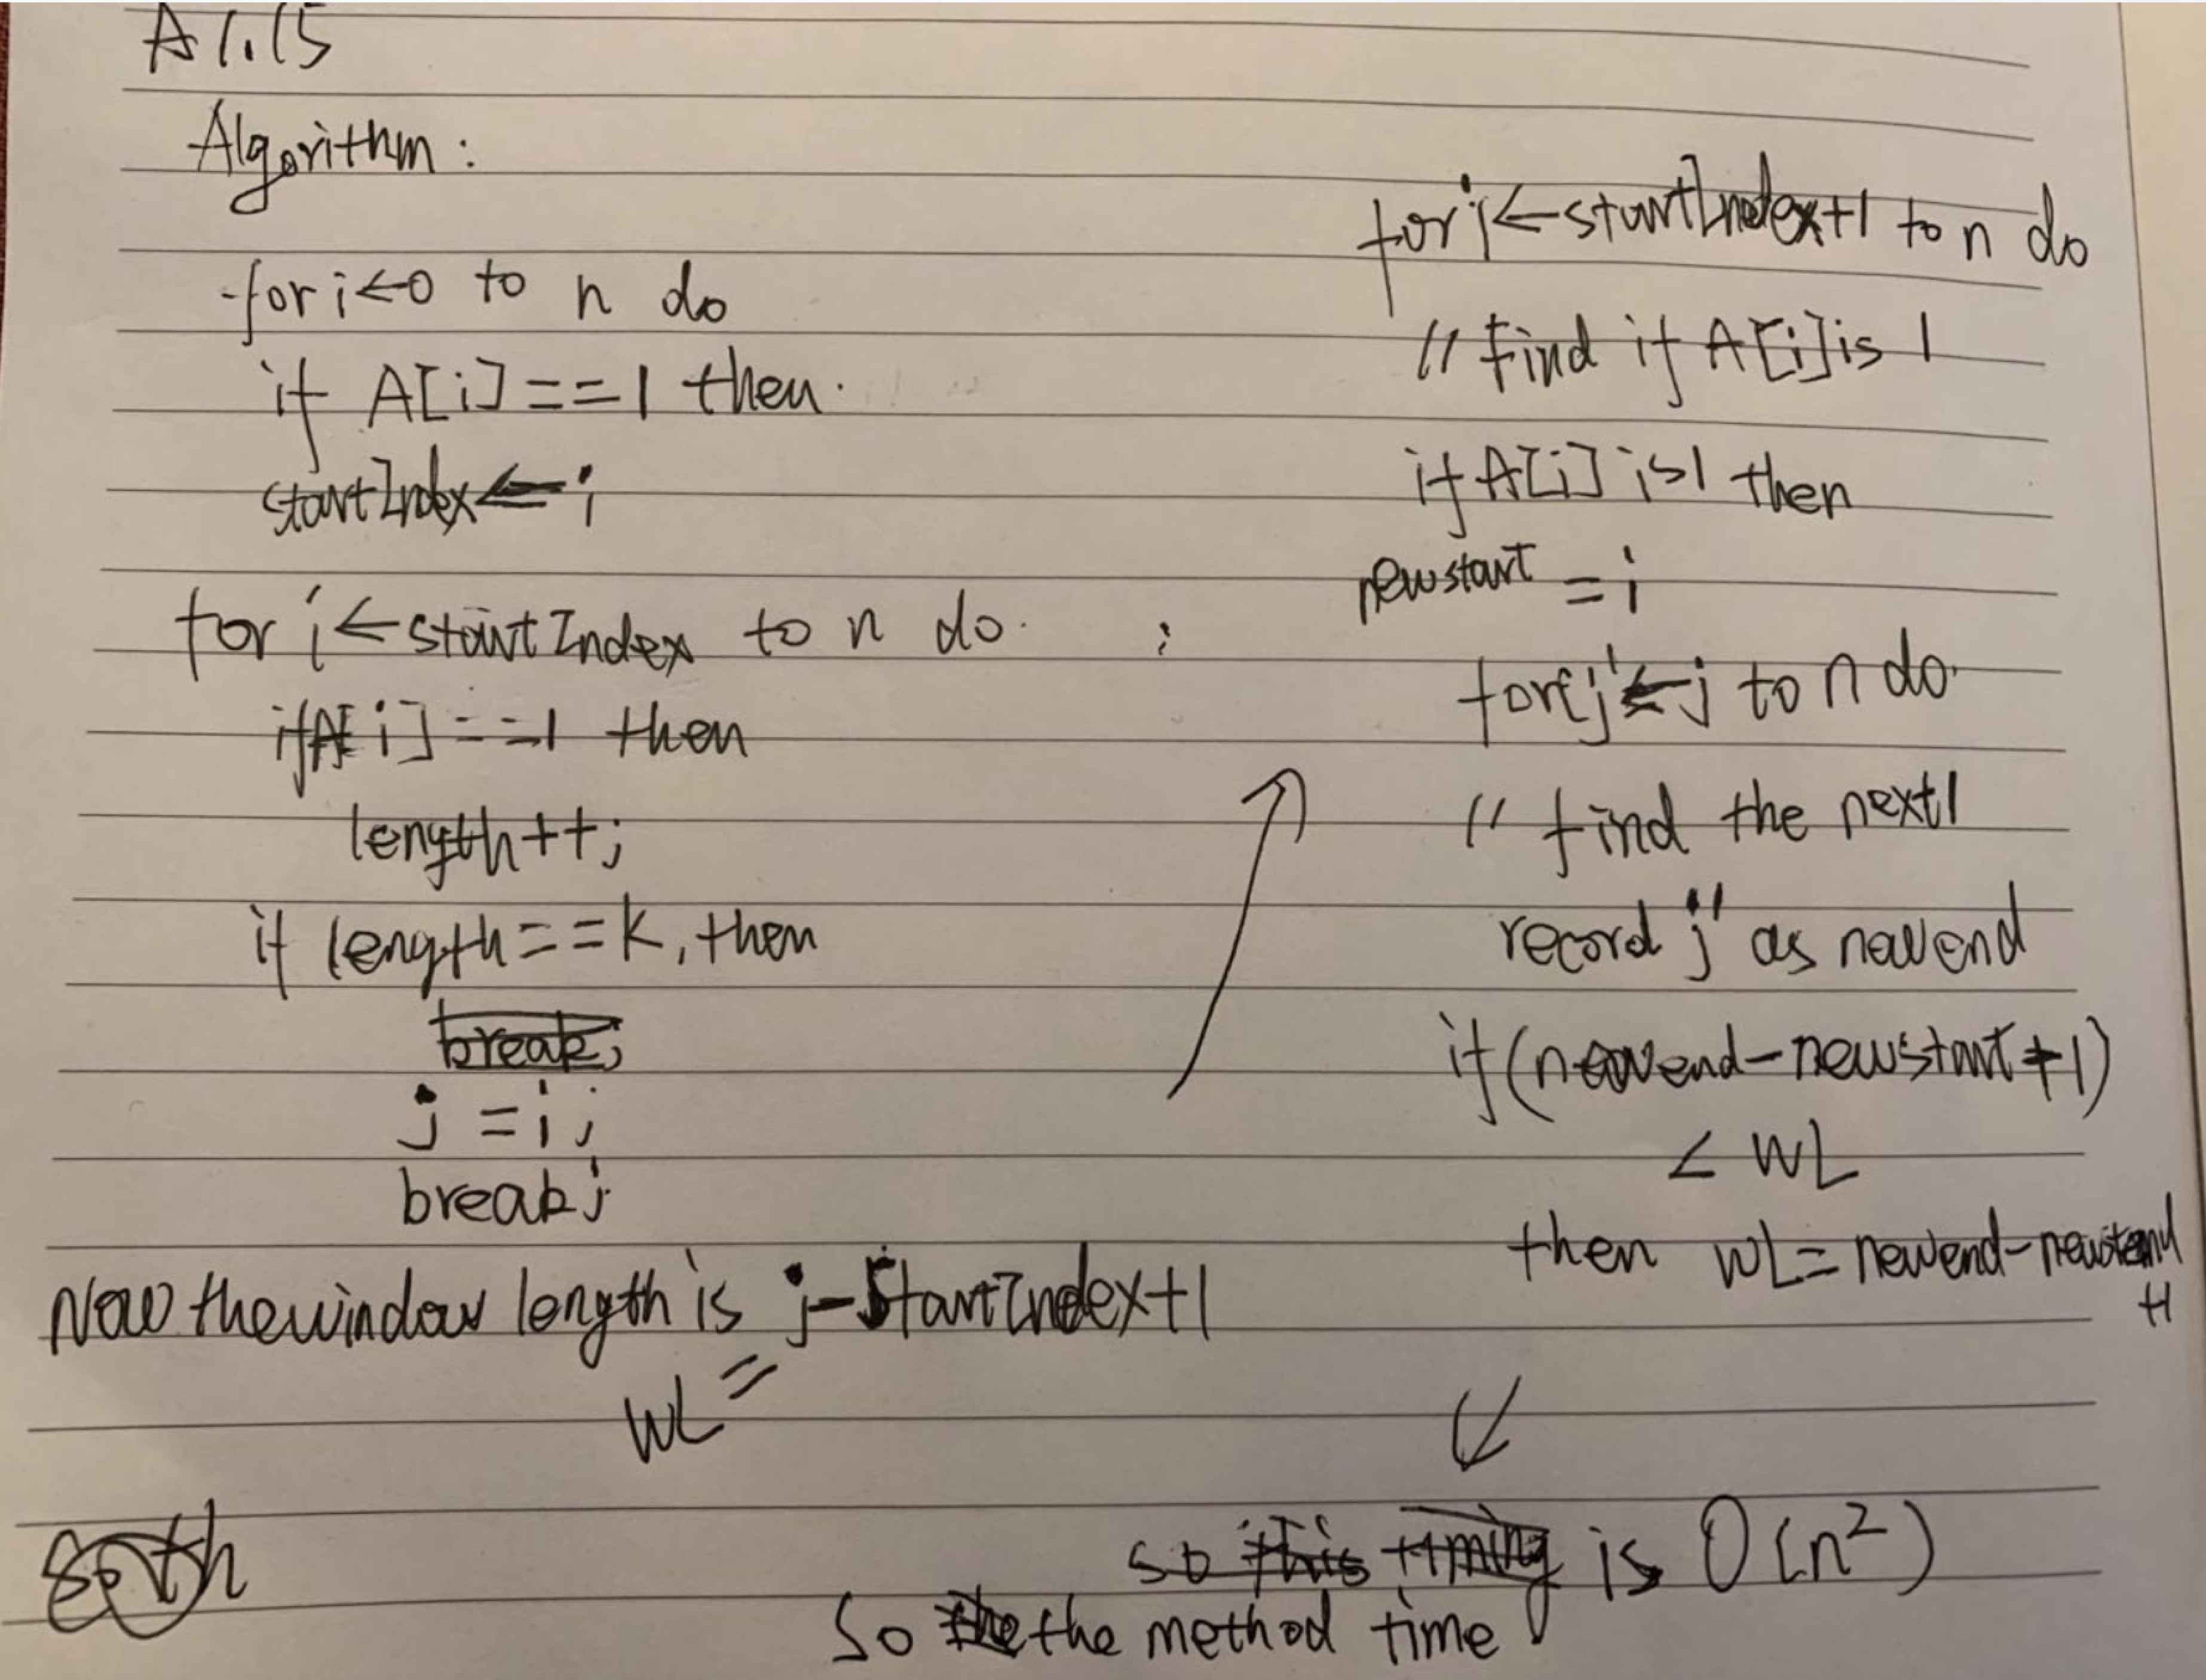 A 1.15
Algorithm:
for i ← 0 to n do
if A[i] == 1 then
startIndex ← i
for i ← startIndex to n do
if A[i] == 1 then
length++;
if length == k, then
break;
j = i;
break;
Now the window length is j - StartIndex+1
WL =
so th
for i ← startIndex+1 to n do
// find if A[i] is 1
if A[i] is 1 then
newstart = i
for j' ← j to n do
// find the next 1
record j' as newend
if (newend - newstart + 1)
< WL
then WL = newend -
+1
so this timing is O(n²)
So the the method time